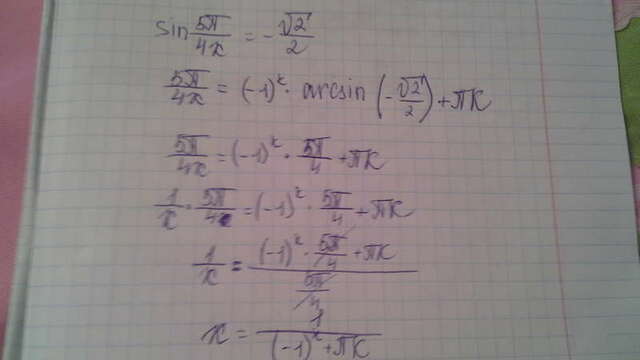 sin 5π/4x = - √2/2
5π/4x = (-1)^k · arcsin (-√2/2) + πk
5π/4x = (-1)^k · 5π/4 + πk
1/x · 5π/4 = (-1)^k · 5π/4 + πk
1/x = ((-1)^k · 5π/4 + πk)/(5π/4)
x = 1/((-1)^k + πk)